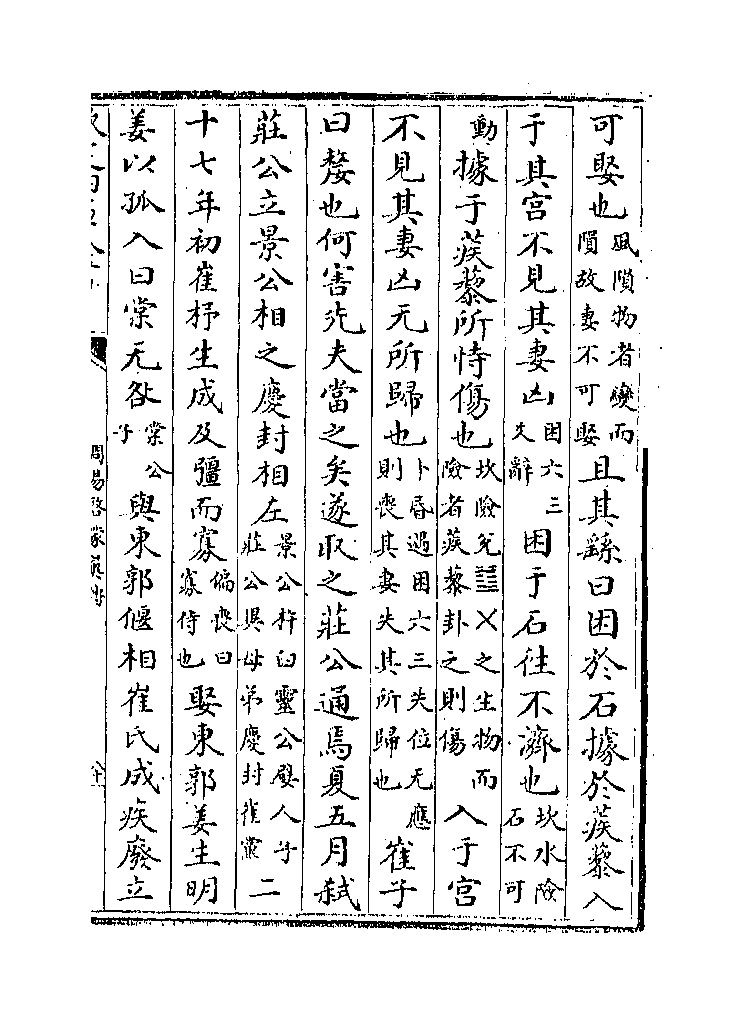 可娶也風隕物者變而隕故妻不可娶且其繇曰困於石據於蒺藜入
于其宫不見其妻凶困六三爻辭困于石徃不濟也坎水險石不可
動據于蒺藜所恃傷也坎險兌之生物而險者蒺藜卦之則傷入于宫
不見其妻凶无所歸也卜昏遇困六三失位无應則喪其妻失其所歸也崔子
曰嫠也何害先夫當之矣遂取之莊公通焉夏五月弑
莊公立景公相之慶封相左景公杵臼靈公嬖人子莊公異母弟慶封崔黨二
十七年初崔杼生成及彊而寡偏喪曰寡侍也娶東郭姜生明
姜以孤入曰棠无咎棠公子與東郭偃相崔氏成疾廢立
周易啓蒙翼傳